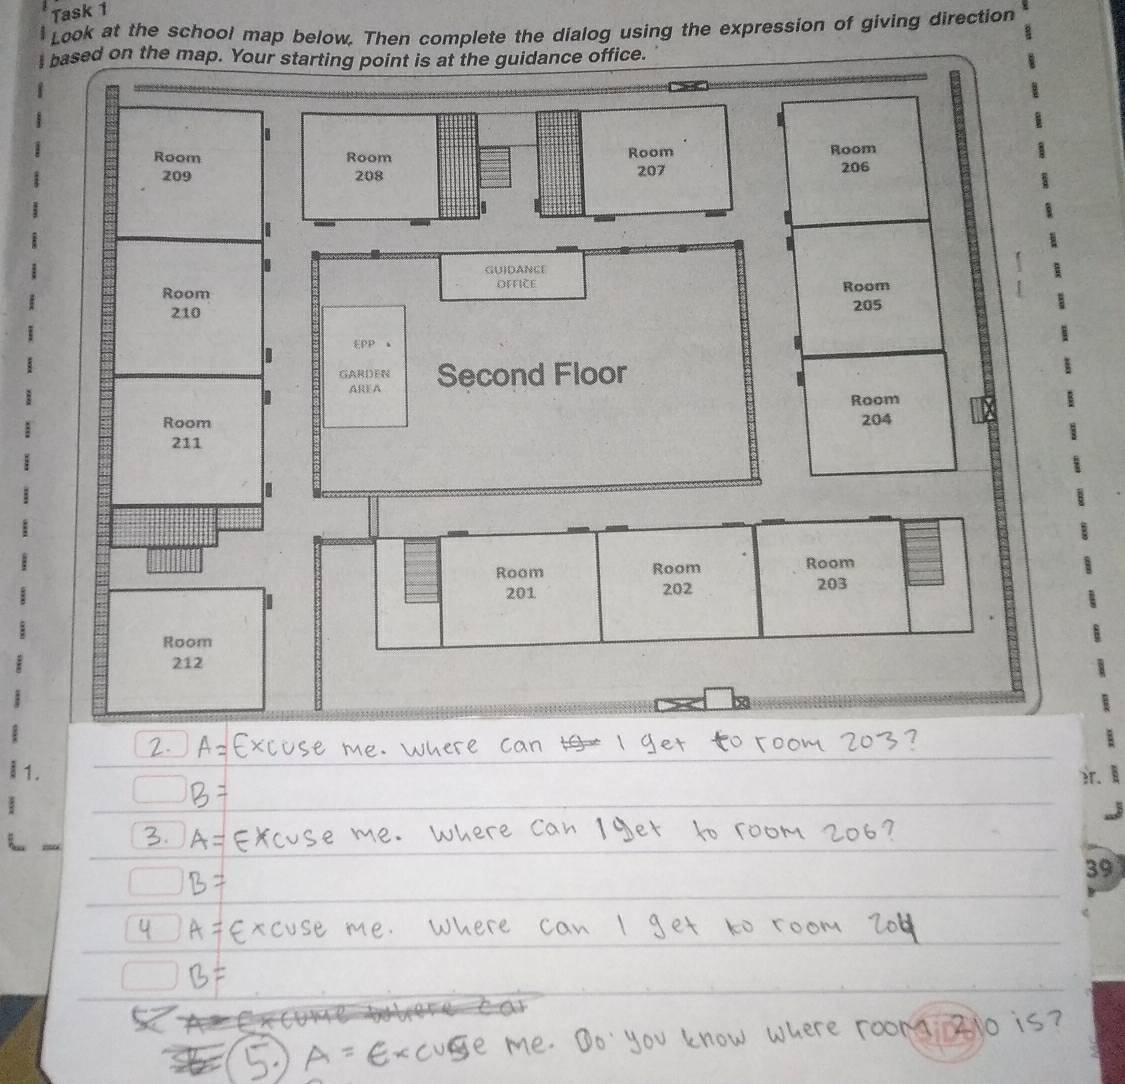 Task 1
Look at the school map below. Then complete the dialog using the expression of giving direction
based on the map. Your starting point is at the guidance office.
Room
209
Room
208
Room
207
Room
206
GUIDANCE
OFFICE
Room
210
Room
205
EPP
GARDEN
AREA
Second Floor
Room
211
Room
204
Room
201
Room
202
Room
203
Room
212
1.
er.
2. A= Excuse me. where can I get to room 203?
B=
3. A= Excuse me. Where can I get to room 206?
B=
39
4 A= Excuse me. Where can I get to room 204
B=
5. A= Excume where can
5. A = Excuse me. Do you know where room 210 is?